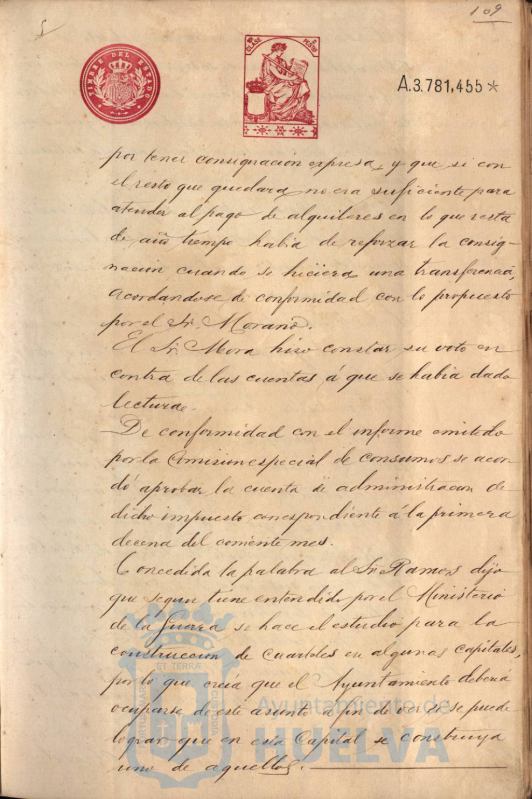 109
TIMBRE DEL ESTADO
A.3.781,455*
por tener consignación expresa, y que si con
el resto que quedara no era suficiente para
atender al pago de alquileres en lo que resta
de año tiempo habia de reforzar la consig-
nación cuando se hiciera una transferencia,
acordandose de conformidad con lo propuesto
por el Sr. Moraño.
El Sr. Mora hizo constar su voto en
contra de las cuentas á que se habia dado
lectura.
De conformidad con el informe emitido
por la Comision especial de consumos se acor-
dó aprobar la cuenta de administracion de
dicho impuesto correspondiente á la primera
decena del corriente mes.
Concedida la palabra al Sr. Ramos dijo
que segun tiene entendido por el Ministerio
de la Guerra se hace el estudio para la
construccion de Cuarteles en algunas capitales,
por lo que creía que el Ayuntamiento deberá
ocuparse de este asunto a fin de ver si se puede
lograr que en esta Capital se construya
uno de aquellos.
Ayuntamiento de
HUELVA